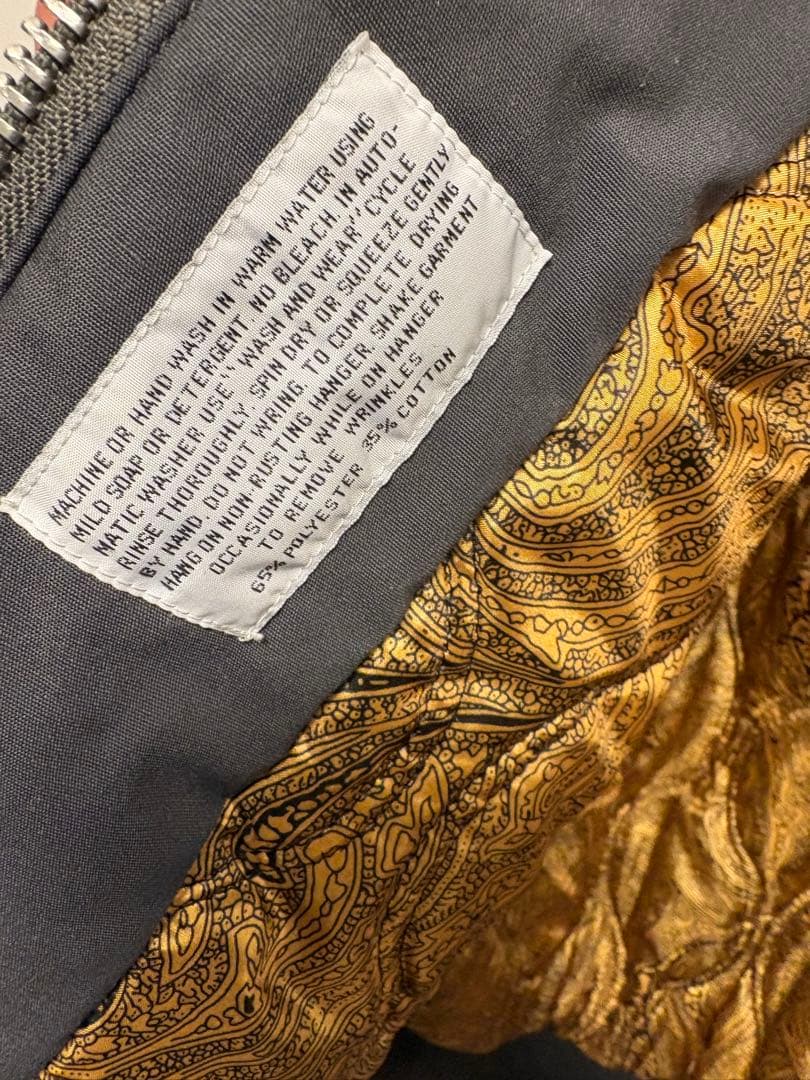 MACHINE OR HAND WASH IN WARM WATER USING
MILD SOAP OR DETERGENT. NO BLEACH. IN AUTO-
MATIC WASHER USE "WASH AND WEAR" CYCLE
RINSE THOROUGHLY SPIN DRY OR SQUEEZE GENTLY
BY HAND. DO NOT WRING. TO COMPLETE DRYING
HANG ON NON-RUSTING HANGER. SHAKE GARMENT
OCCASIONALLY WHILE ON HANGER
TO REMOVE WRINKLES
65% POLYESTER 35% COTTON